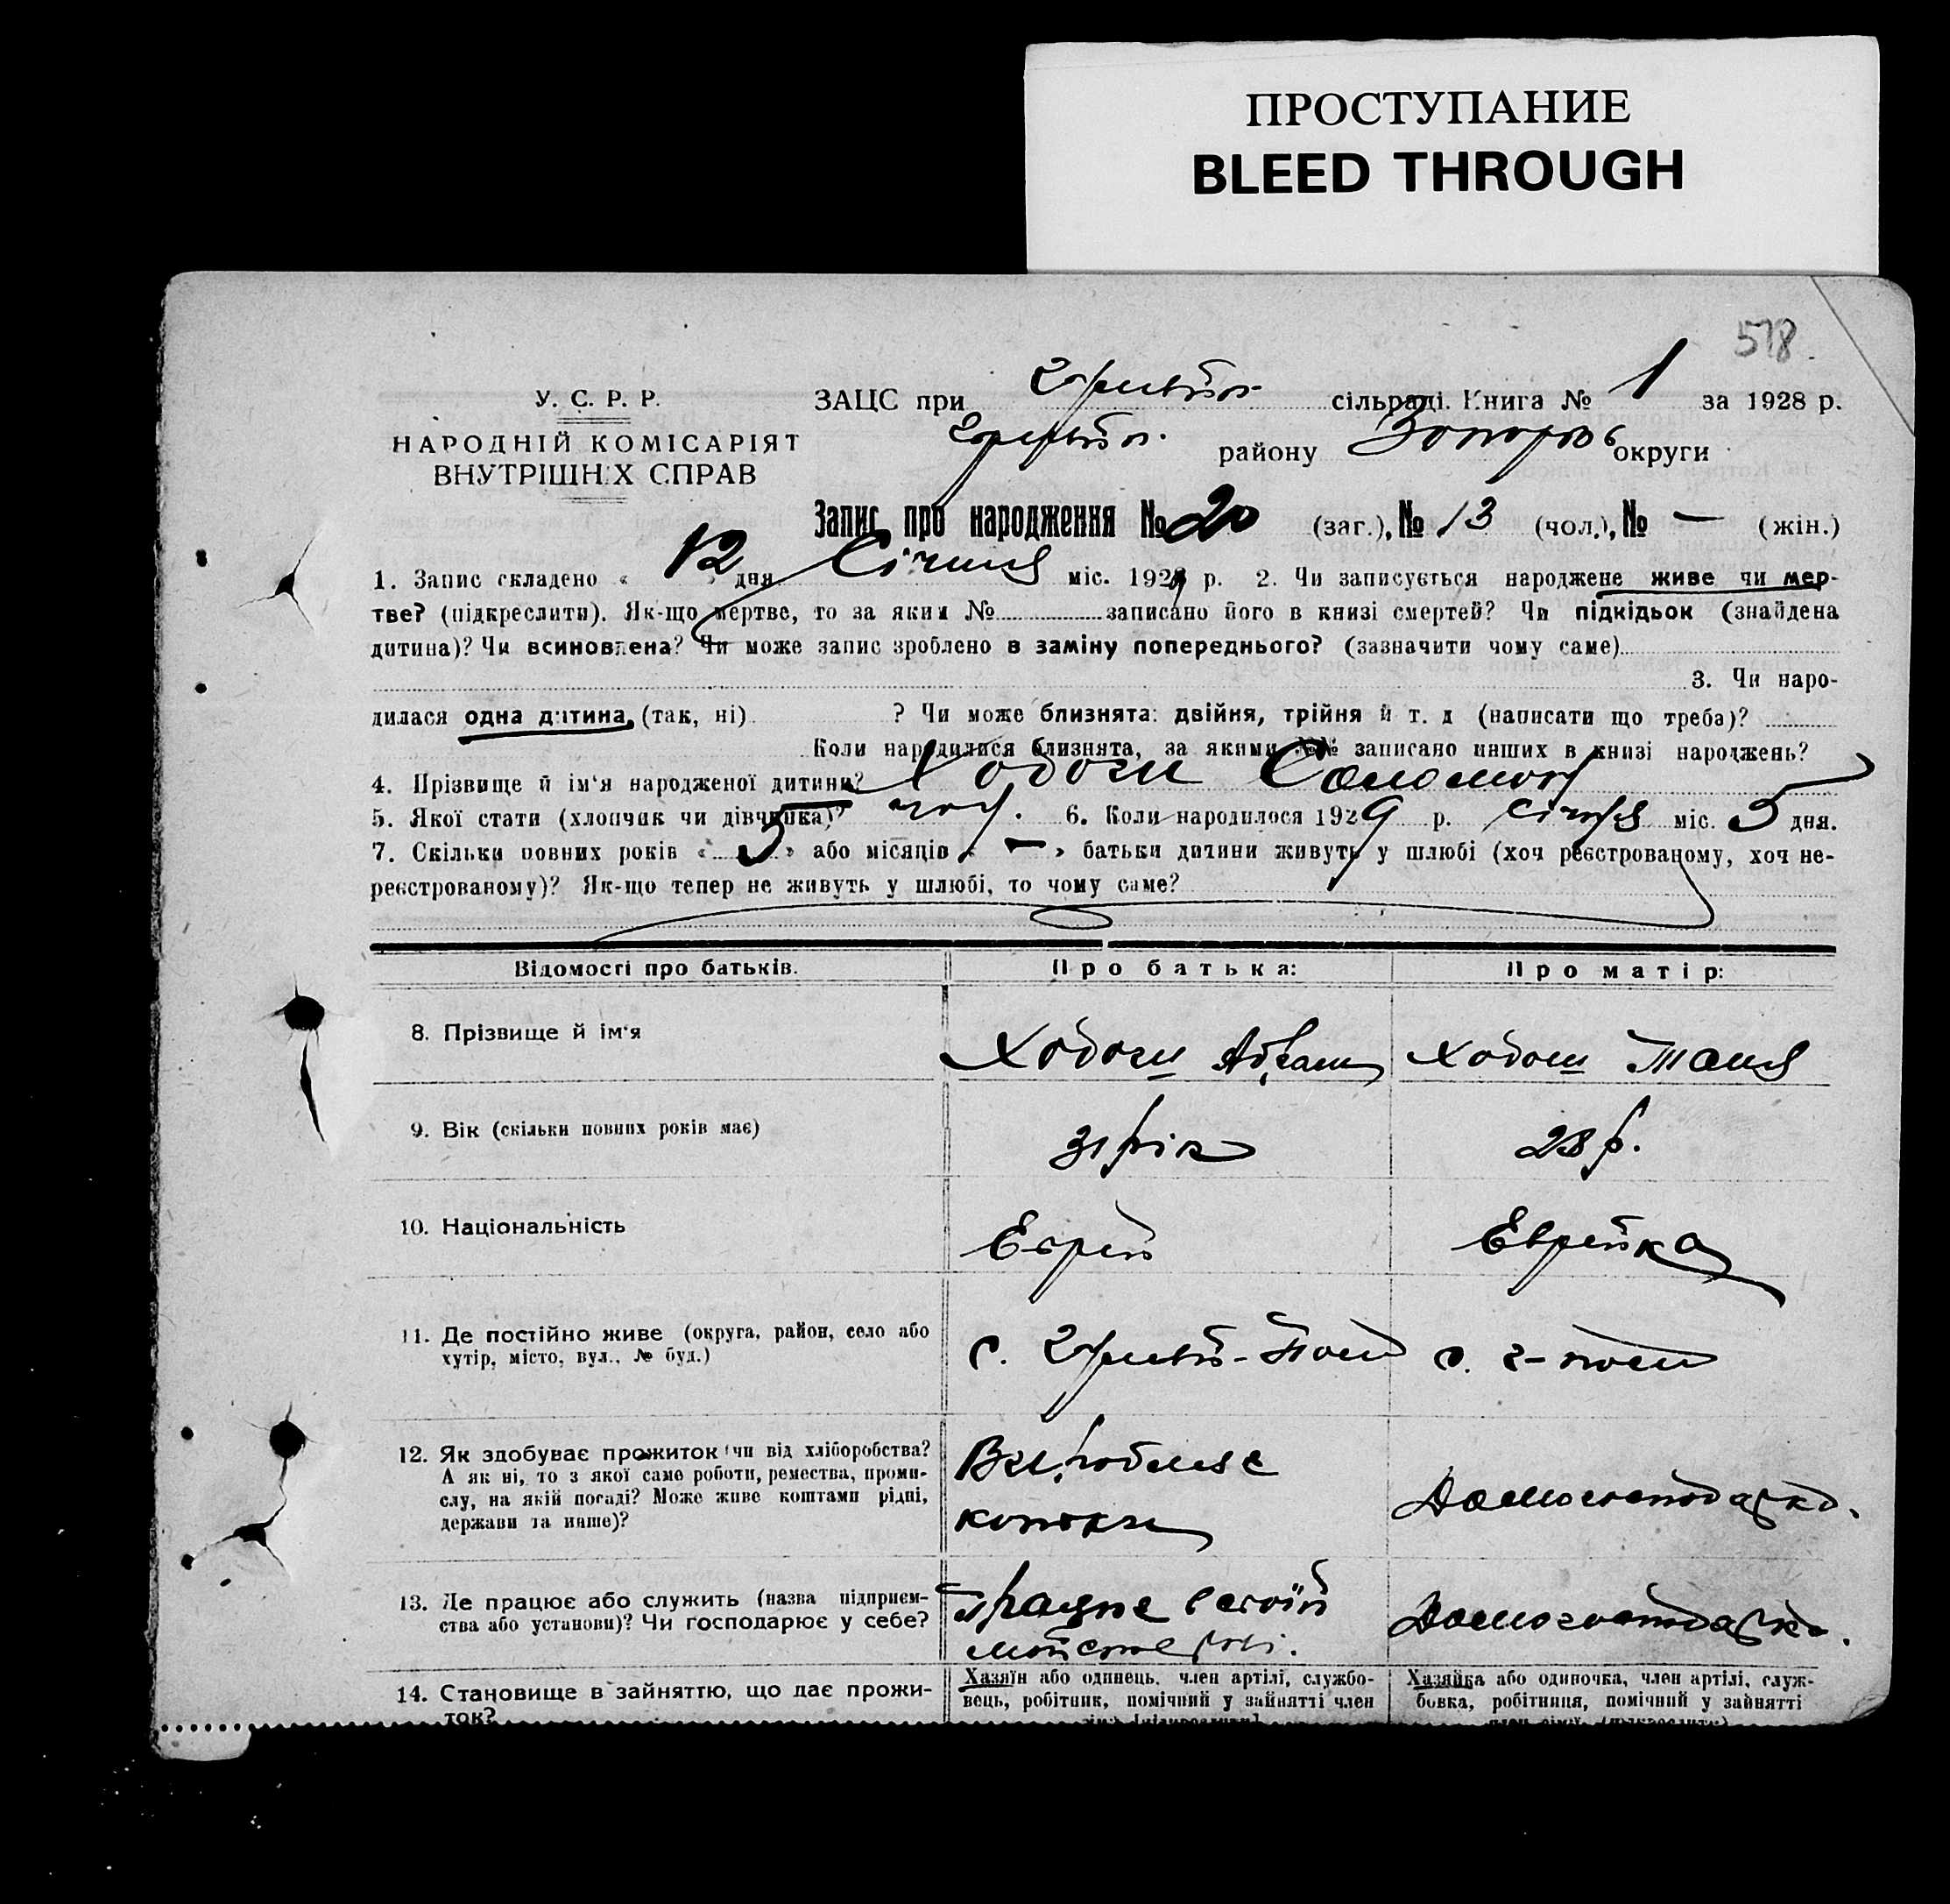 ПРОСТУПАНИЕ
BLEED THROUGH
578
У. С. Р. Р.
НАРОДНІЙ КОМІСАРІЯТ
ВНУТРІШНІХ СПРАВ
ЗАЦС при сільраді. Книга № 1 за 1928 р.
району Запоріз округи
Запис про народження № 20 (заг.), № 13 (чол.), № — (жін.)
1. Запис складено « 12 » дня Січня міс. 1929 р. 2. Чи записується народжене живе чи мер-
тве? (підкреслити). Як-що мертве, то за яким № записано його в книзі смертей? Чи підкідьок (знайдена
дитина)? Чи всиновлена? Чи може запис зроблено в заміну попереднього? (зазначити чому саме)
3. Чи наро-
дилася одна дитина, (так, ні) ? Чи може близнята: двійня, трійня й т. д (написати що треба)?
Коли народилися близнята, за якими №№ записано инших в книзі народжень?
4. Прізвище й ім'я народженої дитини? Ходош Соломон
5. Якої стати (хлопчик чи дівчинка)? чол. 6. Коли народилося 1929 р. січня міс. 5 дня.
7. Скільки повних років « 5 » або місяців « — » батьки дитини живуть у шлюбі (хоч реєстрованому, хоч не-
реєстрованому)? Як-що тепер не живуть у шлюбі, то чому саме?
Відомості про батьків. Про батька: Про матір:
8. Прізвище й ім'я Ходош Абрам Ходош Таня
9. Вік (скільки повних років має) 31 рік 28 р.
10. Національність Еврей Еврейка
11. Де постійно живе (округа, район, село або
хутір, місто, вул., № буд.) с. с. г-поль
12. Як здобуває прожиток (чи від хліборобства?
А як ні, то з якої саме роботи, ремества, проми-
слу, на якій посаді? Може живе коштами рідні,
держави та инше)? Домогосподарка.
13. Де працює або служить (назва підприєм-
ства або установи)? Чи господарює у себе? Працює в своїй
майстерні. Домогосподарка.
14. Становище в зайняттю, що дає прожи-
ток?
Хазяїн або одинець, член артілі, службо-
вець, робітник, помічний у зайнятті член
Хазяйка або одиночка, член артілі, служ-
бовка, робітниця, помічний у зайнятті